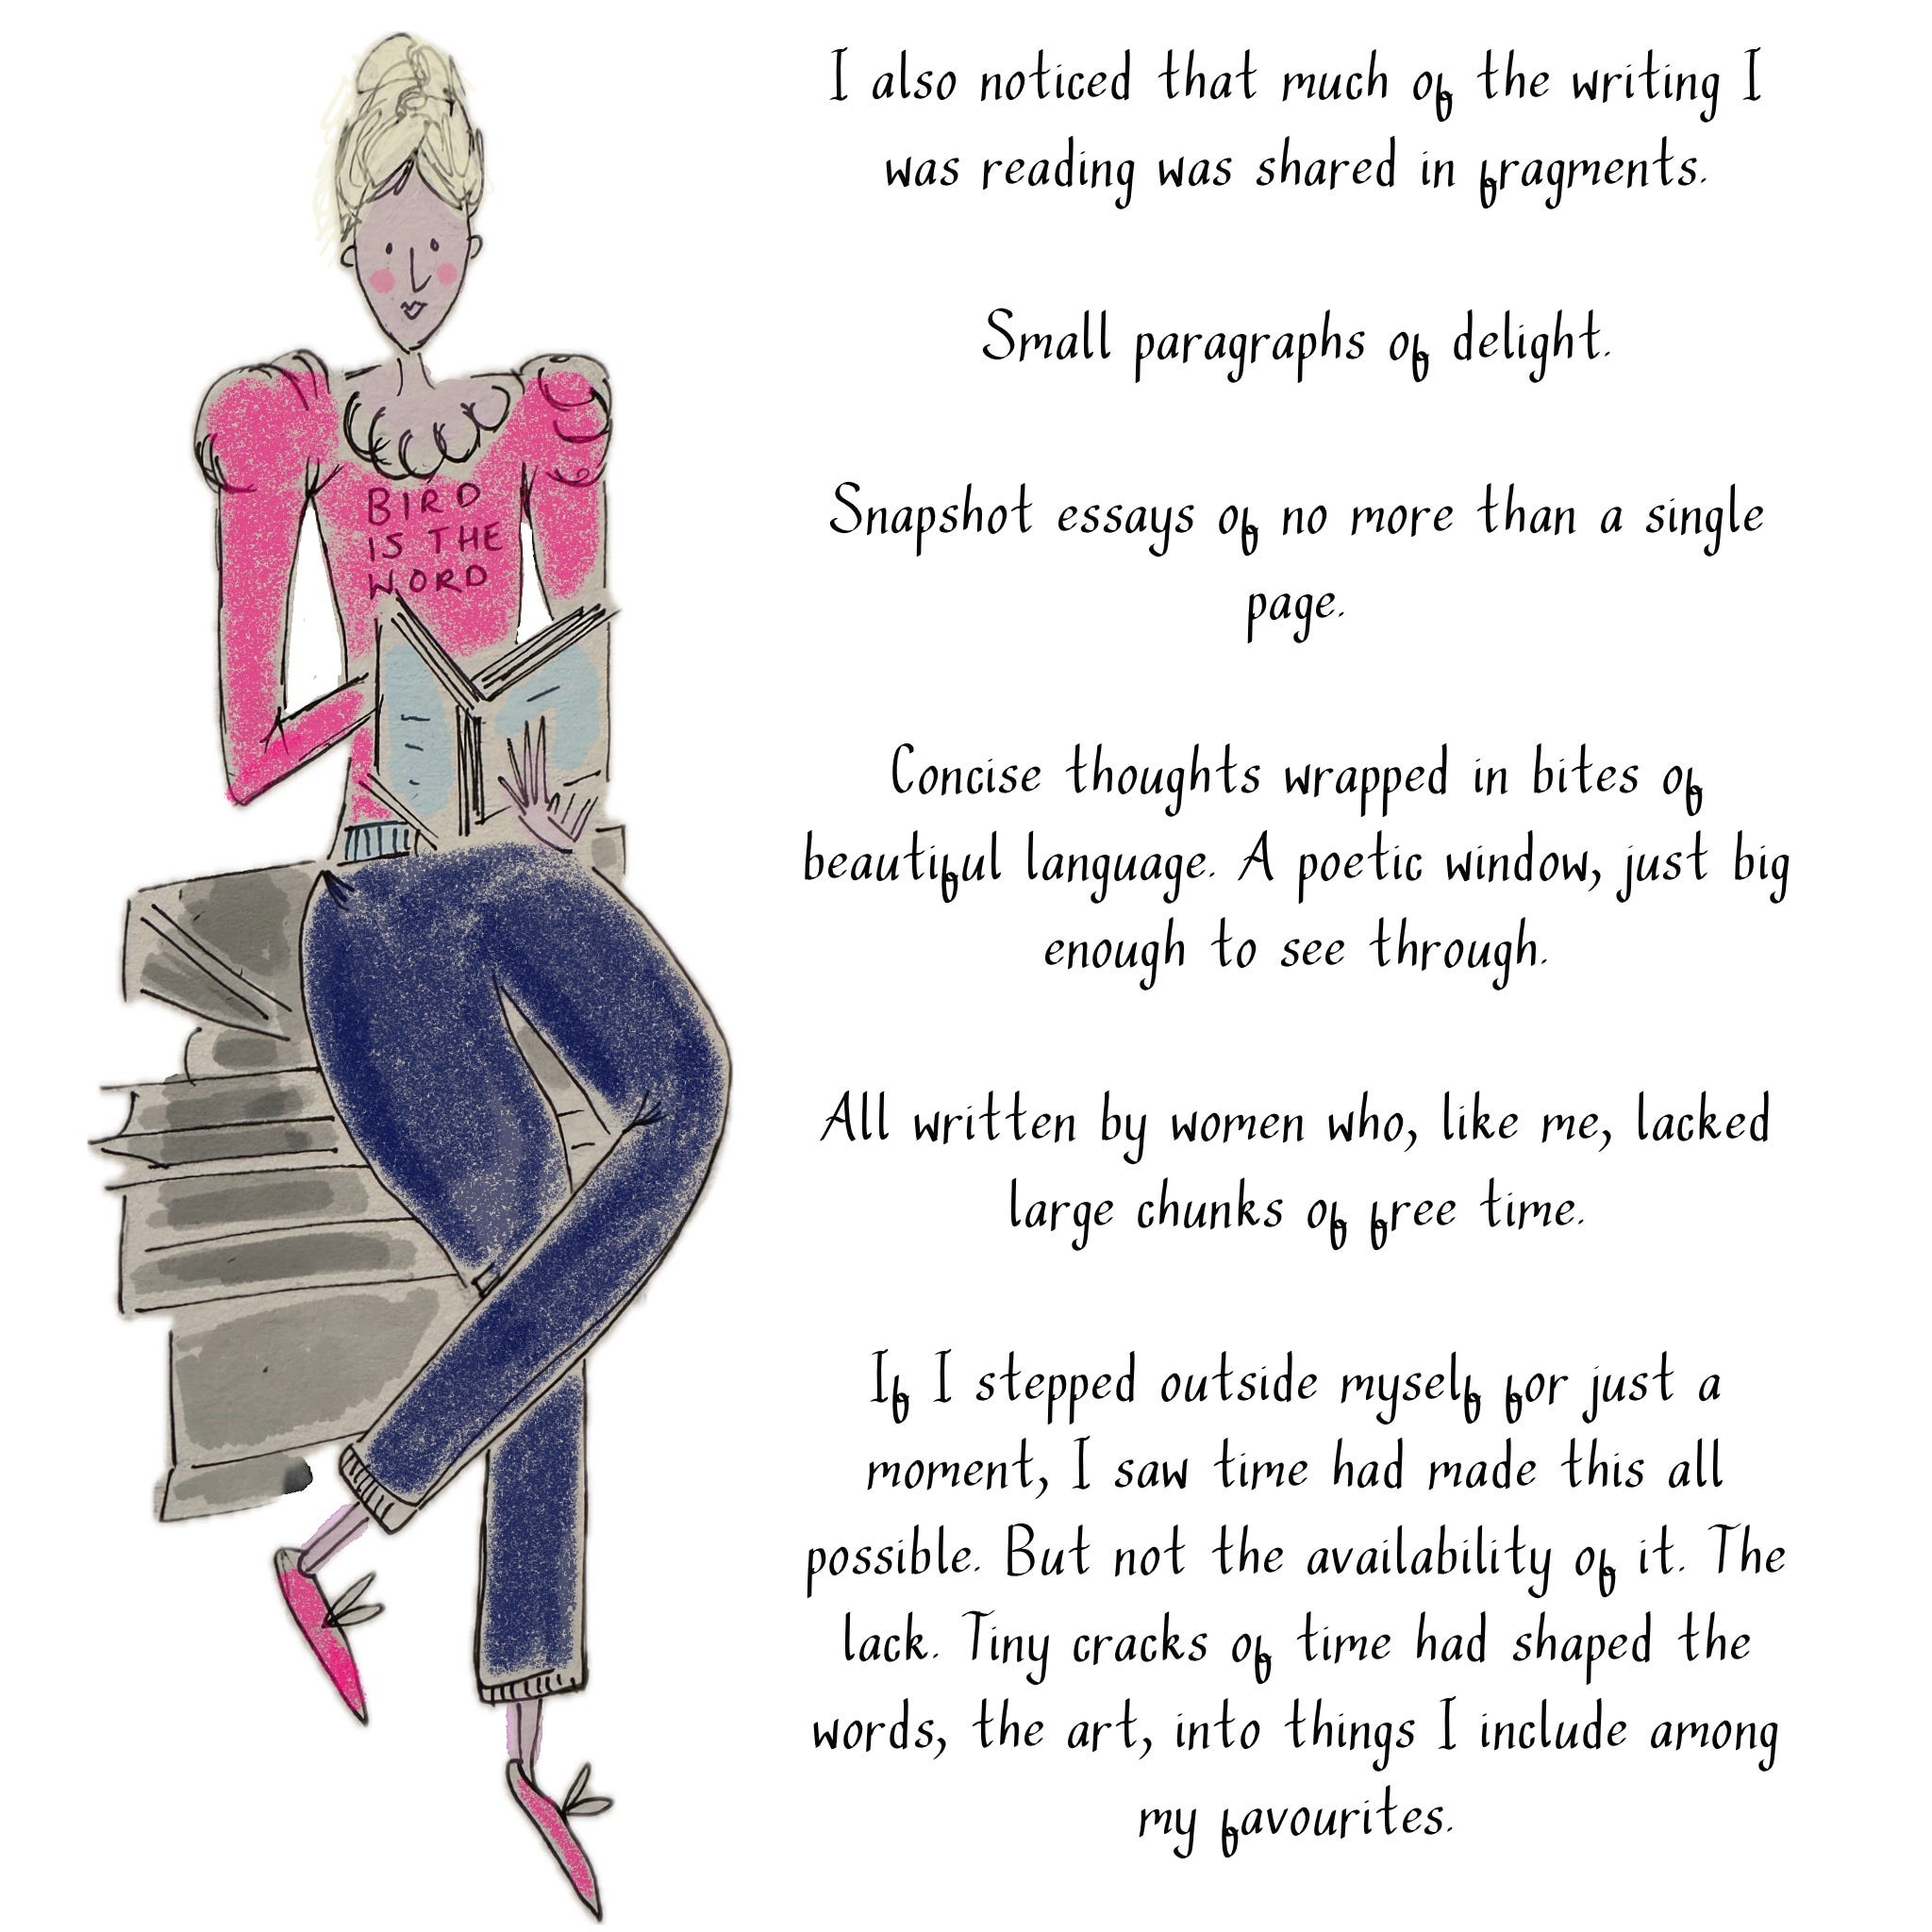 I also noticed that much of the writing I
was reading was shared in fragments.
Small paragraphs of delight.
Snapshot essays of no more than a single
page.
Concise thoughts wrapped in bites of
beautiful language. A poetic window, just big
enough to see through.
All written by women who, like me, lacked
large chunks of free time.
If I stepped outside myself for just a
moment, I saw time had made this all
possible. But not the availability of it. The
lack. Tiny cracks of time had shaped the
words, the art, into things I include among
my favourites.
BIRD
IS THE
WORD